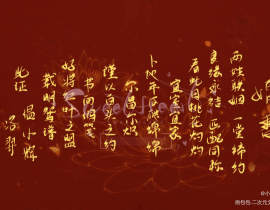 两姓联姻 一堂缔约
良缘永结 匹配同称
看此日桃花灼灼
宜室宜家
卜他年瓜瓞绵绵
尔昌尔炽
谨以白头之约
书向鸿笺
好将红叶之盟
载明鸳谱
此证
温小辉
洛羿